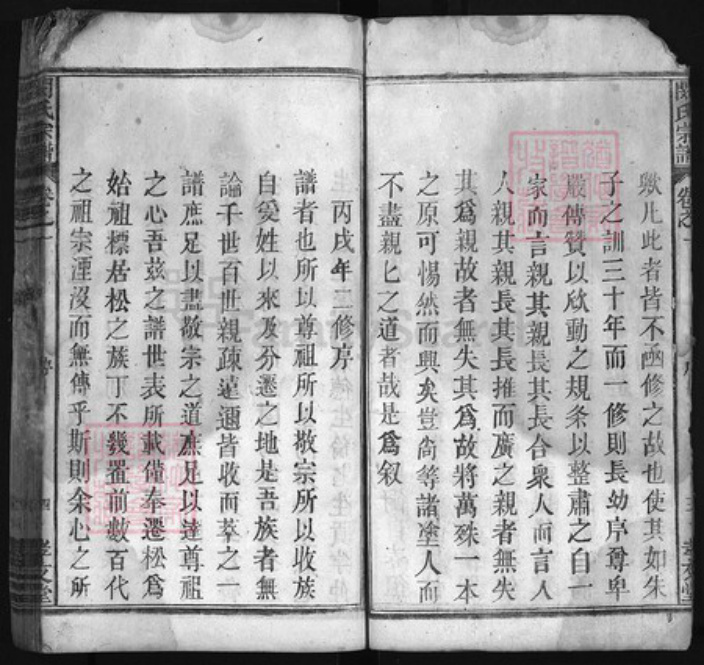 歟凡此者皆不亟修之故也使其如朱
子之訓三十年而一修則長幼序尊卑
嚴傳贊以欣動之規条以整肅之自一
家而言親其親長其長合衆人而言人
人親其親長其長推而廣之親者無失
其爲親故者無失其爲故將萬殊一本
之原可惕然而興矣豈尚等諸塗人而
不盡親匕之道者哉是爲叙
丙戌年二修序
譜者也所以尊祖所以敬宗所以收族
自爰姓以來及分遷之地是吾族者無
論千世百世親疎遠邇皆收而萃之一
譜庶足以盡敬宗之道庶足以達尊祖
之心吾兹之譜世表所載僅奉遷松爲
始祖標居松之族丁不幾置前數百代
之祖宗湮沒而無傳乎斯則余心之所
氏宗譜
卷之一
序
孝友堂
氏宗譜
卷之一
四
孝友堂